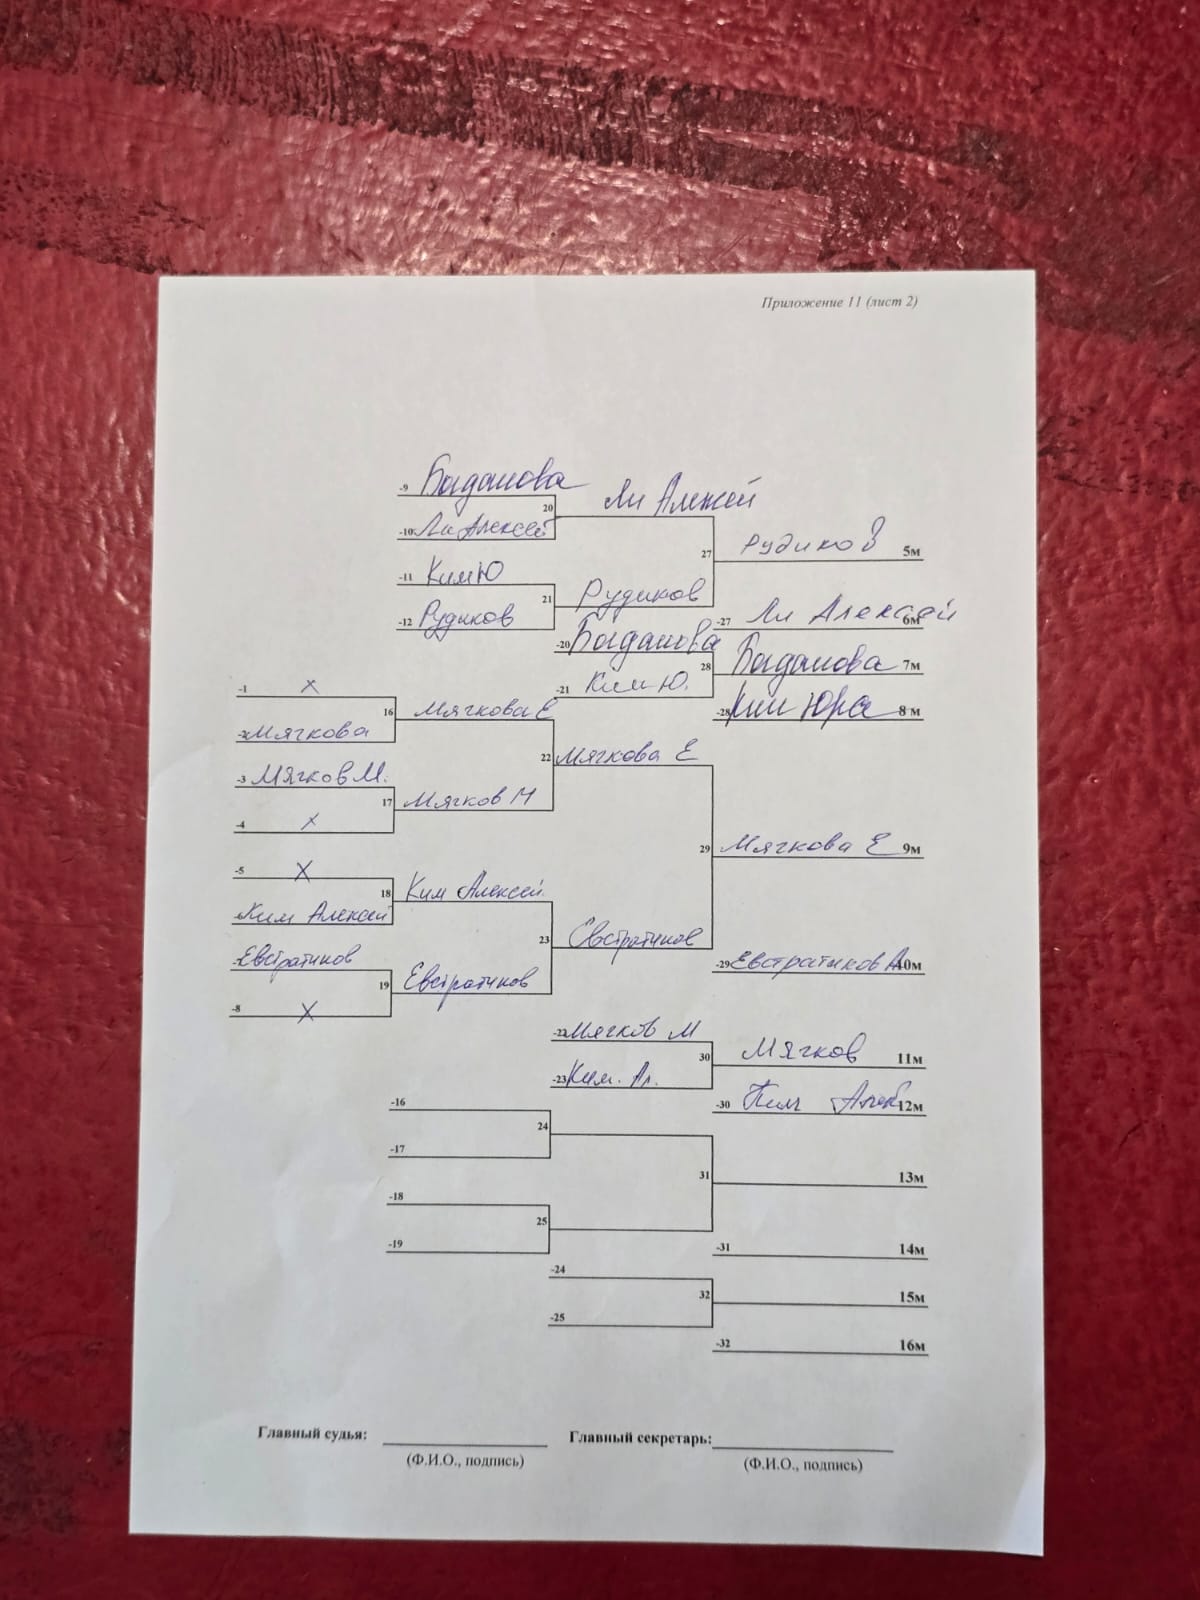 Приложение 11 (лист 2)
-9 Богданова
20 Ли Алексей
-10 Ли Алексей
27 Рудиков 5м
-11 Ким Ю
21 Рудиков
-12 Рудиков
-27 Ли Алексей 6м
-20 Богданова
28 Богданова 7м
-21 Ким Ю.
-28 Ким Юра 8м
-1 х
16 Мягкова Е
-2 Мягкова
22 Мягкова Е
-3 Мягков М.
17 Мягков М
-4 х
29 Мягкова Е 9м
-5 х
18 Ким Алексей
Ким Алексей
23 Евстратиков
Евстратиков
19 Евстратиков
-8 х
-29 Евстратиков А 10м
-22 Мягков М
30 Мягков 11м
-23 Ким. Ал.
-30 12м
-16
24
-17
31 13м
-18
25
-19
-31 14м
-24
32 15м
-25
-32 16м
Главный судья: Главный секретарь:
(Ф.И.О., подпись) (Ф.И.О., подпись)